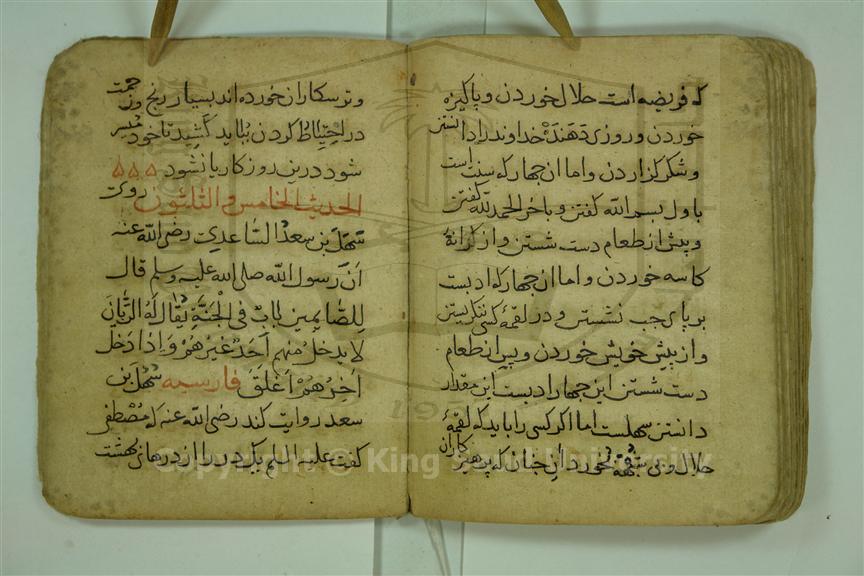 که فریضه است حلال خوردن و پاکیزه
خوردن و روزی دهنده خداوند را دانستن
و شکر گزاردن و اما ان چهار که سنت است
باول بسم الله گفتن و باخر الحمد لله گفتن
و پیش از طعام دست شستن و از کرانهٔ
کاسه خوردن و اما ان چهار که ادبست
بر پای چپ نشستن و در لقمهٔ کسی ننگریستن
و از پیش خویش خوردن و پس از طعام
دست شستن این چهار ادبست این مقدار
دانستن سهلست اما اگر کسی را باید که لقمهٔ
حلال و بی شبهة خورد از چنان که پرهیزکاران
و ترسکاران خورده اند بسیار رنج و زحمت
در احتیاط کردن بباید کشید تا خود میسر
شود درین روزکار یا نشود
الحدیث الخامس و الثلثون روی
سهل بن سعد الساعدی رضی الله عنه
ان رسول الله صلی الله علیه وسلم قال
للصایمین باب فی الجنة یقال له الریان
لا یدخل منهم احد غیرهم و اذا دخل
اخرهم اغلق فارسیه سهل بن
سعد روایت کند رضی الله عنه که مصطفی
گفت علیه السلم یک در را از درهای بهشت
Copyright © King Saud University